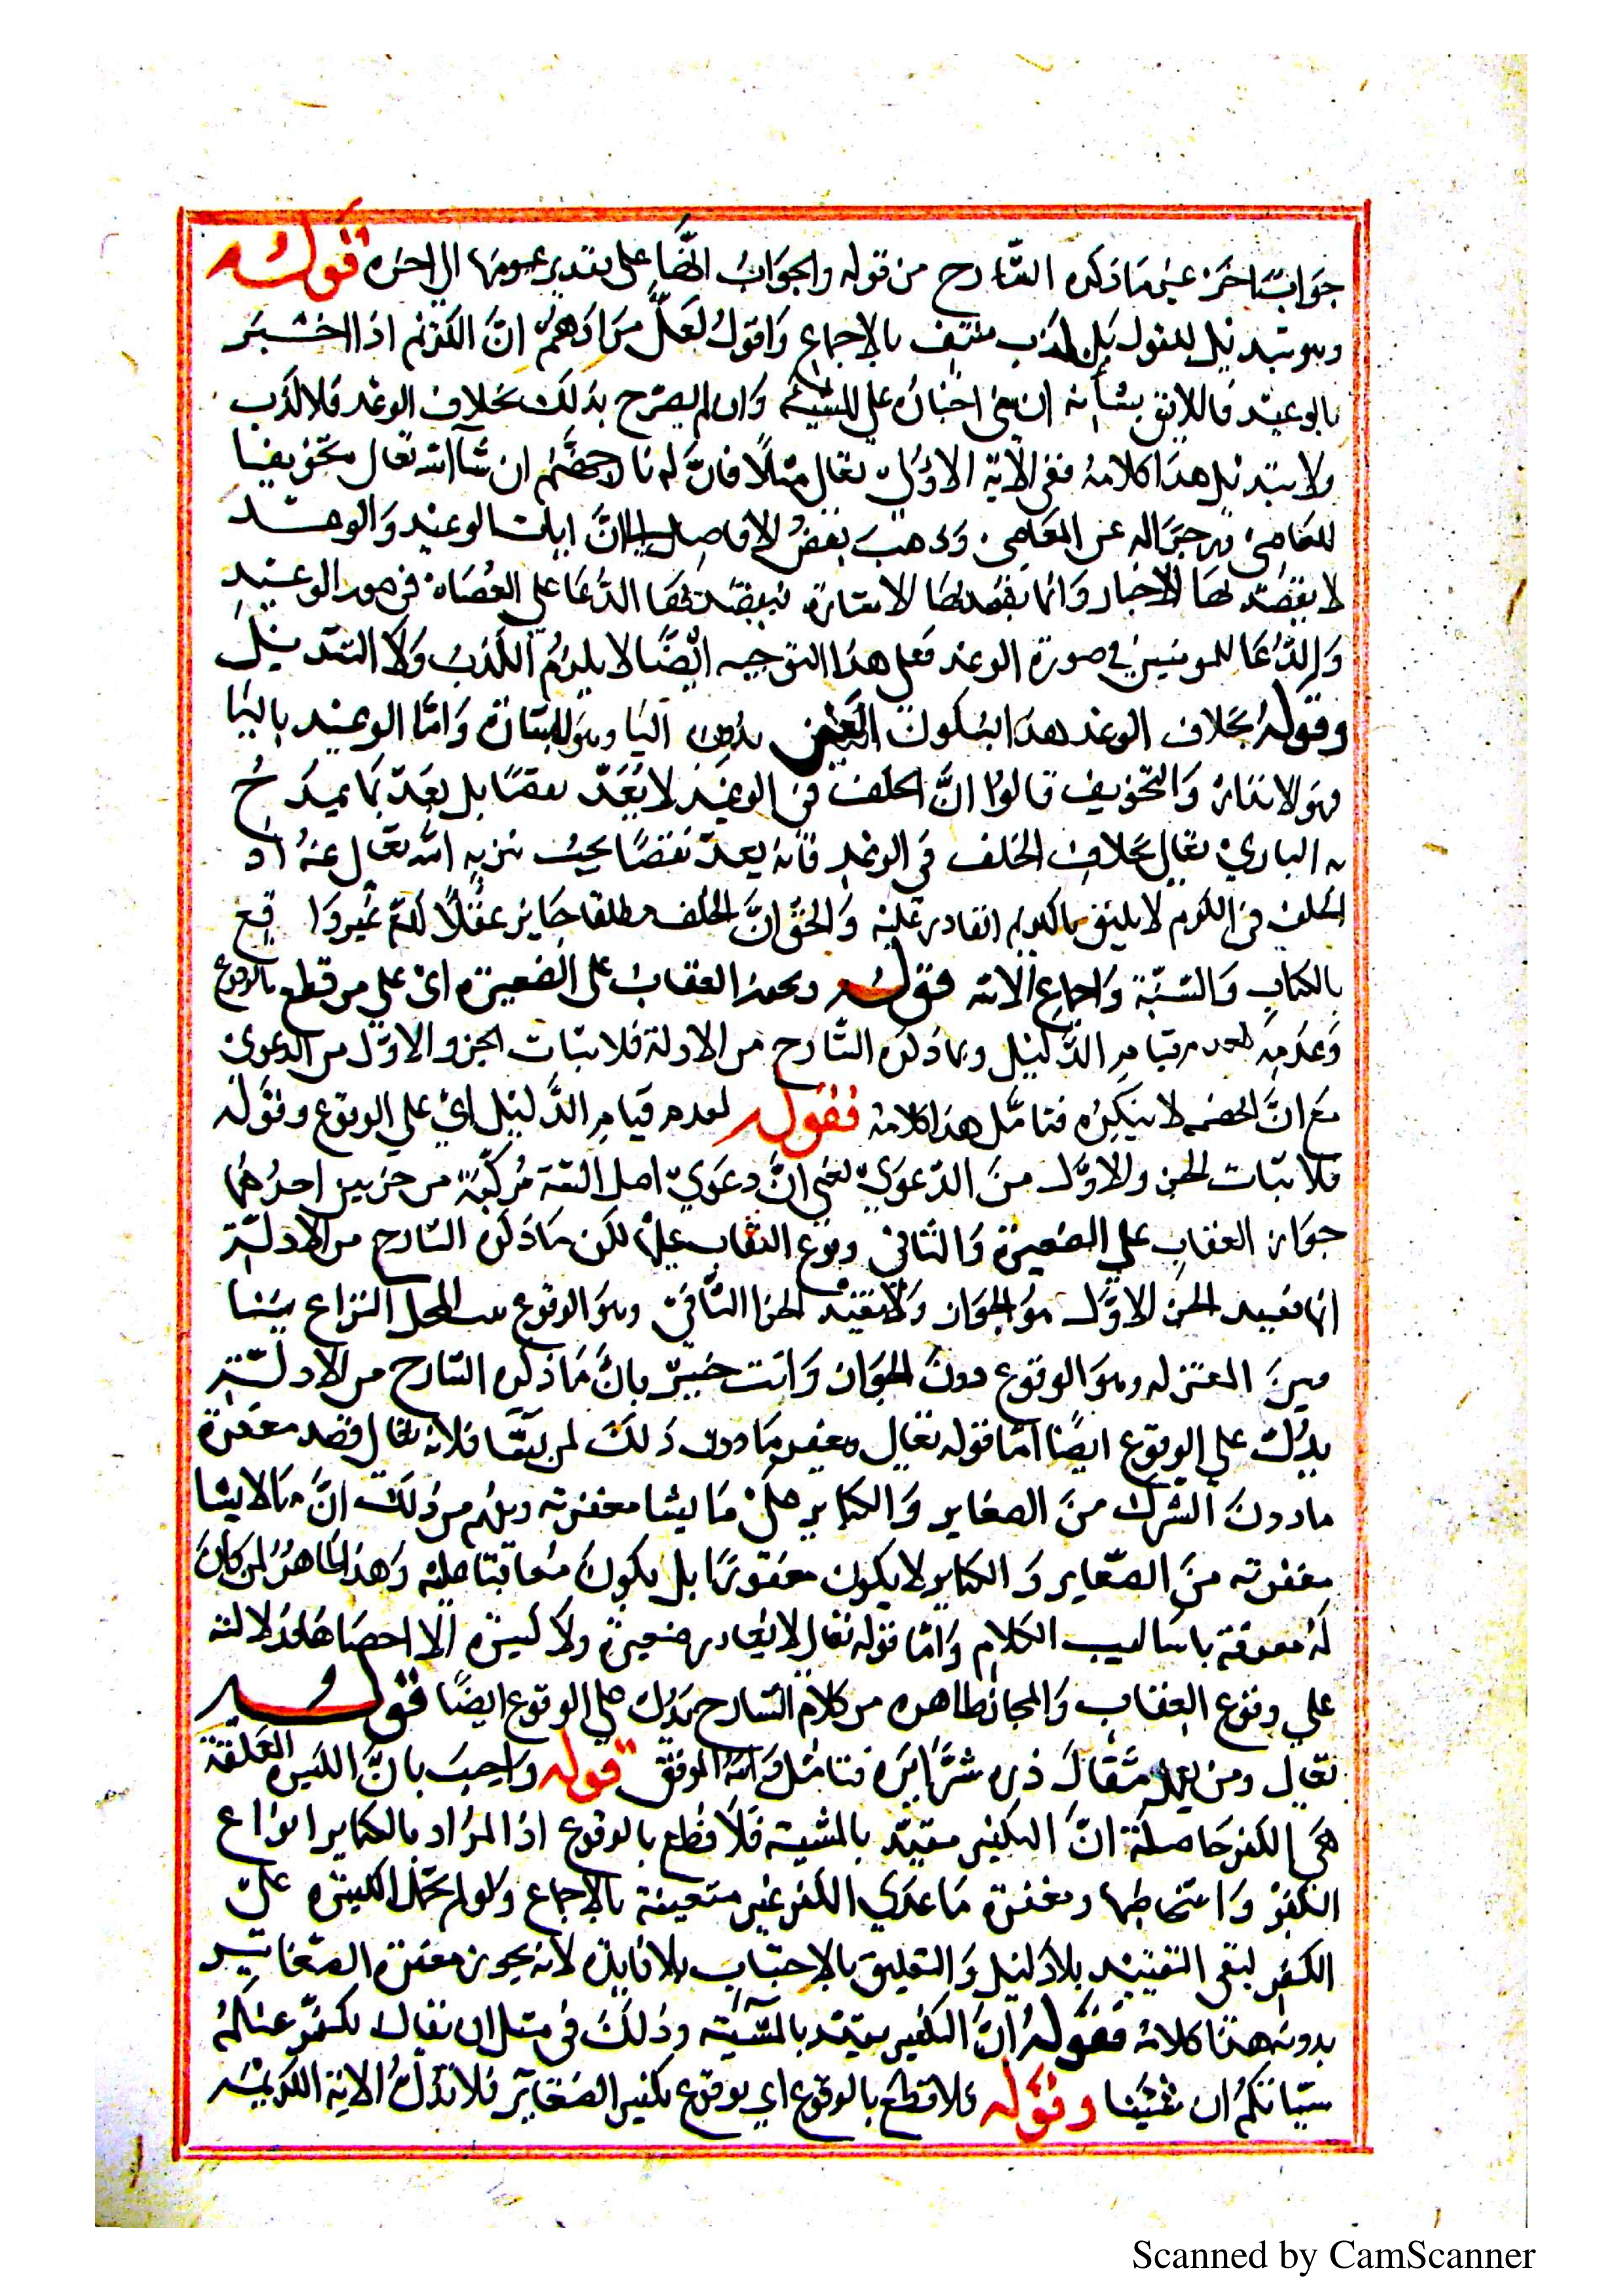 جوابا اخر غير ما ذكره الشارح من قوله والجواب انها على تقدير عمومها الى اخره فقوله
وهو تبديل للقول بل كذب منتف بالاجماع واقول لعل مرادهم ان الكريم اذا اخبر
بالوعيد فاللايق بشأنه ان يبنى اخباره على المشيئة وان لم يصرح بذلك بخلاف الوعد فلا كذب
ولا تبديل هذا كلامه ففى الآية الاولى تعالى مثلا فان له نار جهنم ان شآ الله تعالى تخويفا
للعاصى وزجرا له عن المعاصى وذهب بعض الافاضل الى ان ايات الوعيد والوعد
لا يقصد بها الاخبار وانما يقصد بها الانشاء فيقصد بها الدعا على العصاة فى صور الوعيد
والدعا للمومنين في صورة الوعد فعلى هذا التوجيه ايضا لا يلزم الكذب ولا التبديل
وقوله بخلاف الوعد هذا بسكون العين بدون اليا وهو للبشارة واما الوعيد باليا
فهو الانذار والتخويف قالوا ان الخلف فى الوعيد لا يعد نقصا بل يعد مما يمدح
به الباري تعالى بخلاف الخلف في الوعد فانه يعد نقصا يجب تنزيه الله تعالى عنه اذ
الخلف فى الكرم لا يليق بالكريم القادر عليه والحق ان الخلف مطلقا جايز عقلا لكنه غير واقع
بالكتاب والسنة واجماع الامة فقوله ويجوز العقاب على الصغيرة اى على من قطع بالوقوع
وعدمه لعدم قيام الدليل وما ذكره الشارح من الادلة فلاثبات الجزو الاول من الدعوى
مع ان الخصم لا ينكره فتامل هذا كلامه فقوله لعدم قيام الدليل اي على الوقوع وقوله
فلاثبات الجزو الاول من الدعوي يعنى ان دعوي اهل السنة مركبة من جزيين احدهما
جواز العقاب علي الصغيرة والثانى وقوع العقاب عليها لكن ما ذكره الشارح من الادلة
انما تفيد الجزء الاول هو الجواز ولا تفيد الجزا الثانى وهو الوقوع مع ان المحل النزاع بيننا
وبين المعتزله وهو الوقوع دون الجواز وانت خبير بان ما ذكره الشارح من الادلة
يدل على الوقوع ايضا اما قوله تعالى ويغفر ما دون ذلك لمن يشا فلانه تعالى قصد مغفرة
ما دون الشرك من الصغاير والكباير على ما يشا مغفرته ويفهم من ذلك ان ما لا يشا
مغفرته من الصغاير والكباير لا يكون مغفورا بل يكون معاقبا عليه وهذا ظاهر لمن كان
له معرفة باساليب الكلام واما قوله تعالى لا يغادر صغيرة ولا كبيرة الا احصاها فدلالته
علي وقوع العقاب والمجازاة ظاهره من كلام الشارح يدل علي الوقوع ايضا فقوله
تعالى ومن يعمل مثقال ذره شرا يره فتامل والله الموفق قوله واجيب بان الكبيره المطلقة
هى الكفر حاصله ان التكفير مقيد بالمشيه فلا قطع بالوقوع اذ المراد بالكباير انواع
الكفر واشخاصها ومغفرة ما عدي الكفر غير متعينة بالاجماع ولو لم تحمل الكبيره على
الكفر لبقى التقييد بلا دليل والتعليق بالاجتناب بلا فايدة لانه يجوز مغفرة الصغاير
بدونه هذا كلامه فقوله ان التكفير مقيد بالمشيئة وذلك فى مثل ان يقال نكفر عنكم
سيئاتكم ان شئنا وقوله فلا قطع بالوقوع اي بوقوع تكفير الصغاير فلا تدل الاية الكريمه
Scanned by CamScanner